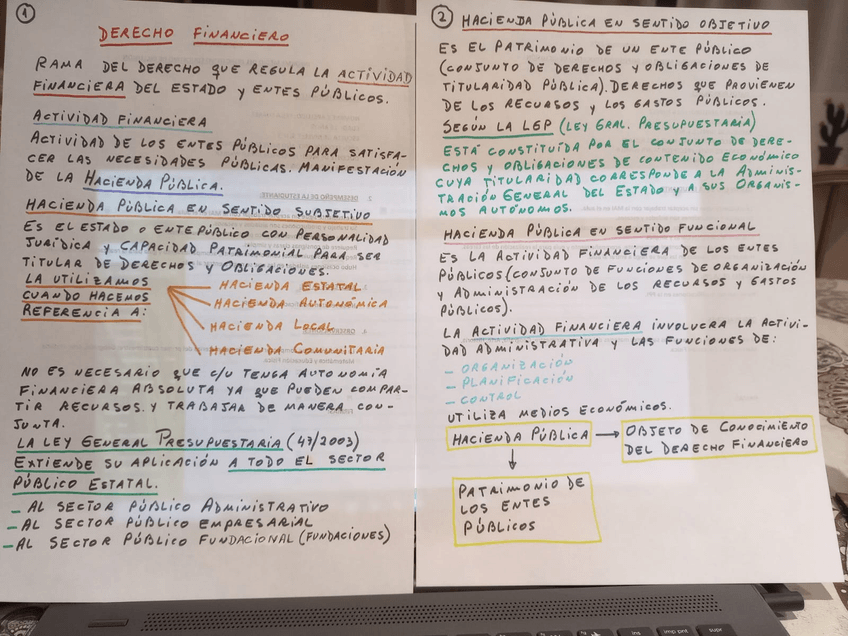 1
DERECHO FINANCIERO
RAMA DEL DERECHO QUE REGULA LA ACTIVIDAD
FINANCIERA DEL ESTADO Y ENTES PÚBLICOS.
ACTIVIDAD FINANCIERA
ACTIVIDAD DE LOS ENTES PÚBLICOS PARA SATISFA-
CER LAS NECESIDADES PÚBLICAS. MANIFESTACIÓN
DE LA HACIENDA PÚBLICA.
HACIENDA PÚBLICA EN SENTIDO SUBJETIVO
ES EL ESTADO O ENTE PÚBLICO CON PERSONALIDAD
JURÍDICA Y CAPACIDAD PATRIMONIAL PARA SER
TITULAR DE DERECHOS Y OBLIGACIONES.
LA UTILIZAMOS
CUANDO HACEMOS
REFERENCIA A:
- HACIENDA ESTATAL
- HACIENDA AUTONÓMICA
- HACIENDA LOCAL
- HACIENDA COMUNITARIA
NO ES NECESARIO QUE C/U TENGA AUTONOMÍA
FINANCIERA ABSOLUTA YA QUE PUEDEN COMPAR-
TIR RECURSOS Y TRABAJAR DE MANERA CON-
JUNTA.
LA LEY GENERAL PRESUPUESTARIA (47/2003)
EXTIENDE SU APLICACIÓN A TODO EL SECTOR
PÚBLICO ESTATAL.
- AL SECTOR PÚBLICO ADMINISTRATIVO
- AL SECTOR PÚBLICO EMPRESARIAL
- AL SECTOR PÚBLICO FUNDACIONAL (FUNDACIONES)
2
HACIENDA PÚBLICA EN SENTIDO OBJETIVO
ES EL PATRIMONIO DE UN ENTE PÚBLICO
(CONJUNTO DE DERECHOS Y OBLIGACIONES DE
TITULARIDAD PÚBLICA). DERECHOS QUE PROVIENEN
DE LOS RECURSOS Y LOS GASTOS PÚBLICOS.
SEGÚN LA LGP (LEY GRAL. PRESUPUESTARIA)
ESTÁ CONSTITUÍDA POR EL CONJUNTO DE DERE-
CHOS Y OBLIGACIONES DE CONTENIDO ECONÓMICO
CUYA TITULARIDAD CORRESPONDE A LA ADMINIS-
TRACIÓN GENERAL DEL ESTADO Y A SUS ORGANIS-
MOS AUTÓNOMOS.
HACIENDA PÚBLICA EN SENTIDO FUNCIONAL
ES LA ACTIVIDAD FINANCIERA DE LOS ENTES
PÚBLICOS (CONJUNTO DE FUNCIONES DE ORGANIZACIÓN
Y ADMINISTRACIÓN DE LOS RECURSOS Y GASTOS
PÚBLICOS).
LA ACTIVIDAD FINANCIERA INVOLUCRA LA ACTIVI-
DAD ADMINISTRATIVA Y LAS FUNCIONES DE:
- ORGANIZACIÓN
- PLANIFICACIÓN
- CONTROL
UTILIZA MEDIOS ECONÓMICOS.
HACIENDA PÚBLICA → OBJETO DE CONOCIMIENTO
DEL DERECHO FINANCIERO
↓
PATRIMONIO DE
LOS ENTES
PÚBLICOS
ins
imp pnt
supr